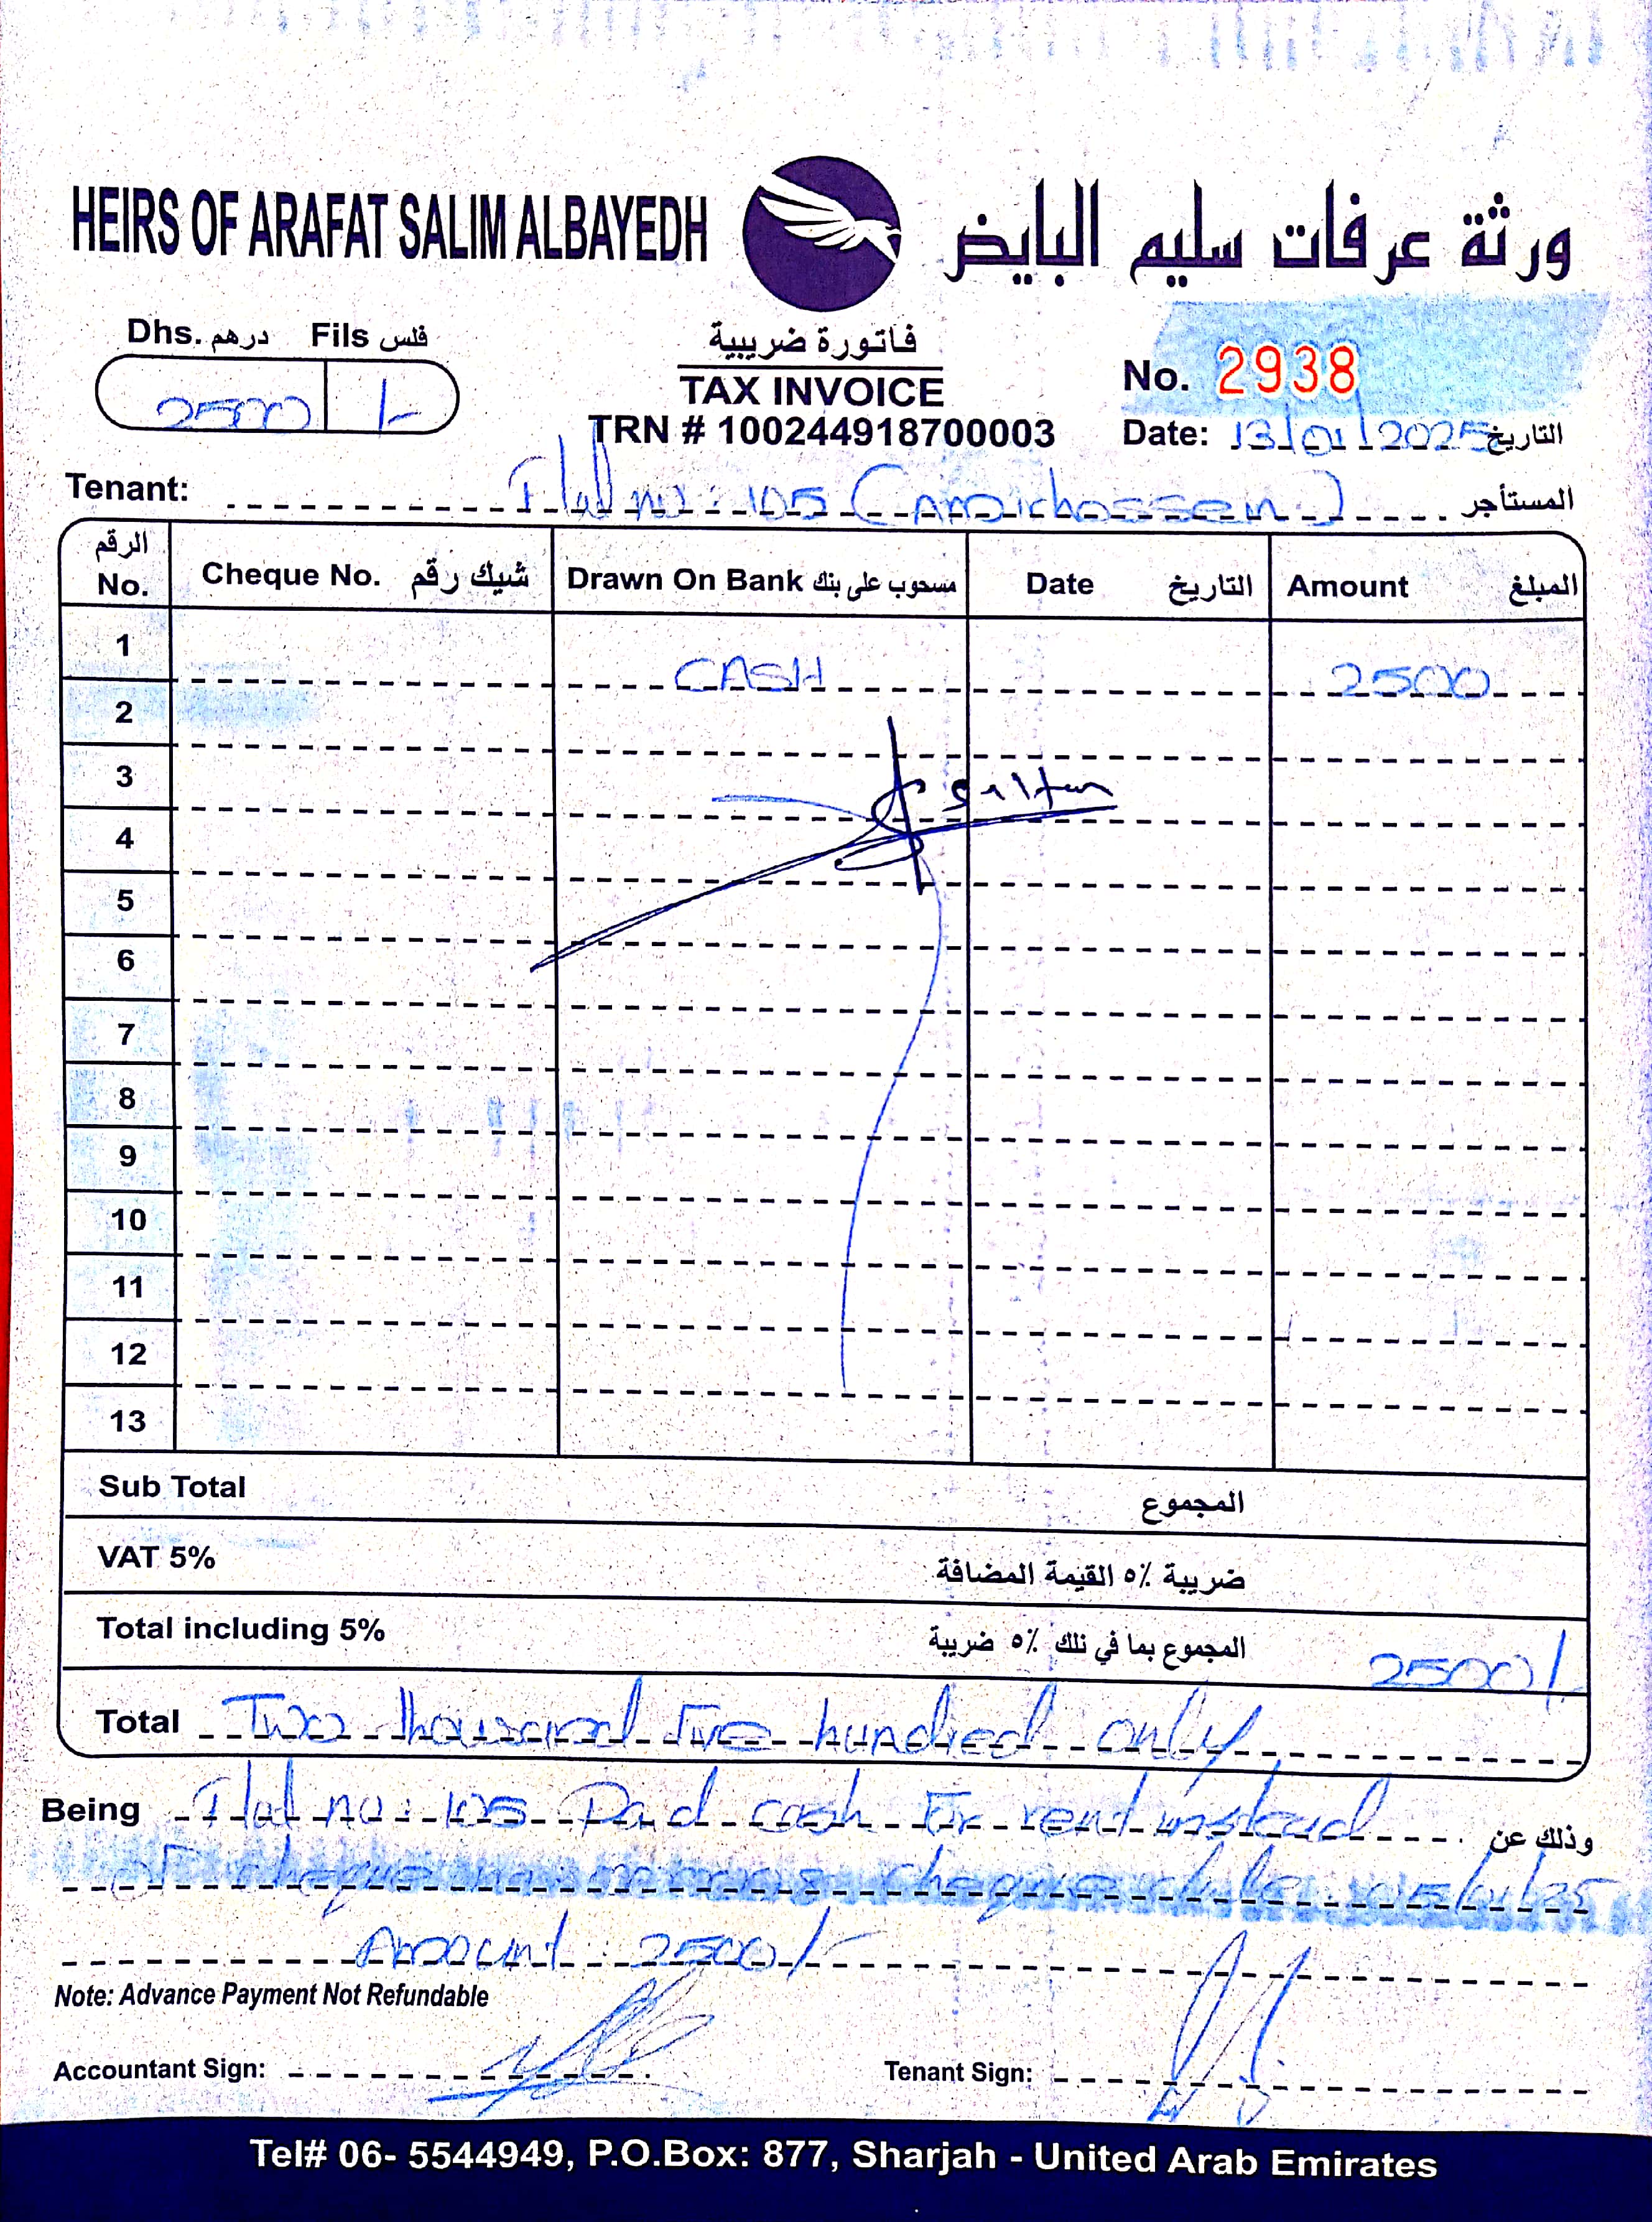 HEIRS OF ARAFAT SALIM ALBAYEDH ورثة عرفات سليم البايض
Dhs. درهم Fils فلس
2500 /-
فاتورة ضريبية
TAX INVOICE
TRN # 100244918700003
No. 2938
Date: 13/01/2025 التاريخ
Tenant: Flat no: 105 (Amirhossein) المستأجر
الرقم No. Cheque No. شيك رقم Drawn On Bank مسحوب على بنك Date التاريخ Amount المبلغ
1 CASH 2500
2
3
4
5
6
7
8
9
10
11
12
13
Sub Total المجموع
VAT 5% ضريبة ٥٪ القيمة المضافة
Total including 5% المجموع بما في ذلك ٥٪ ضريبة 2500/-
Total Two thousand five hundred only
Being Flat no: 105 Paid cash for rent instead وذلك عن
of cheque no cheque date 05/01/25
Amount : 2500/-
Note: Advance Payment Not Refundable
Accountant Sign: Tenant Sign:
Tel# 06- 5544949, P.O.Box: 877, Sharjah - United Arab Emirates